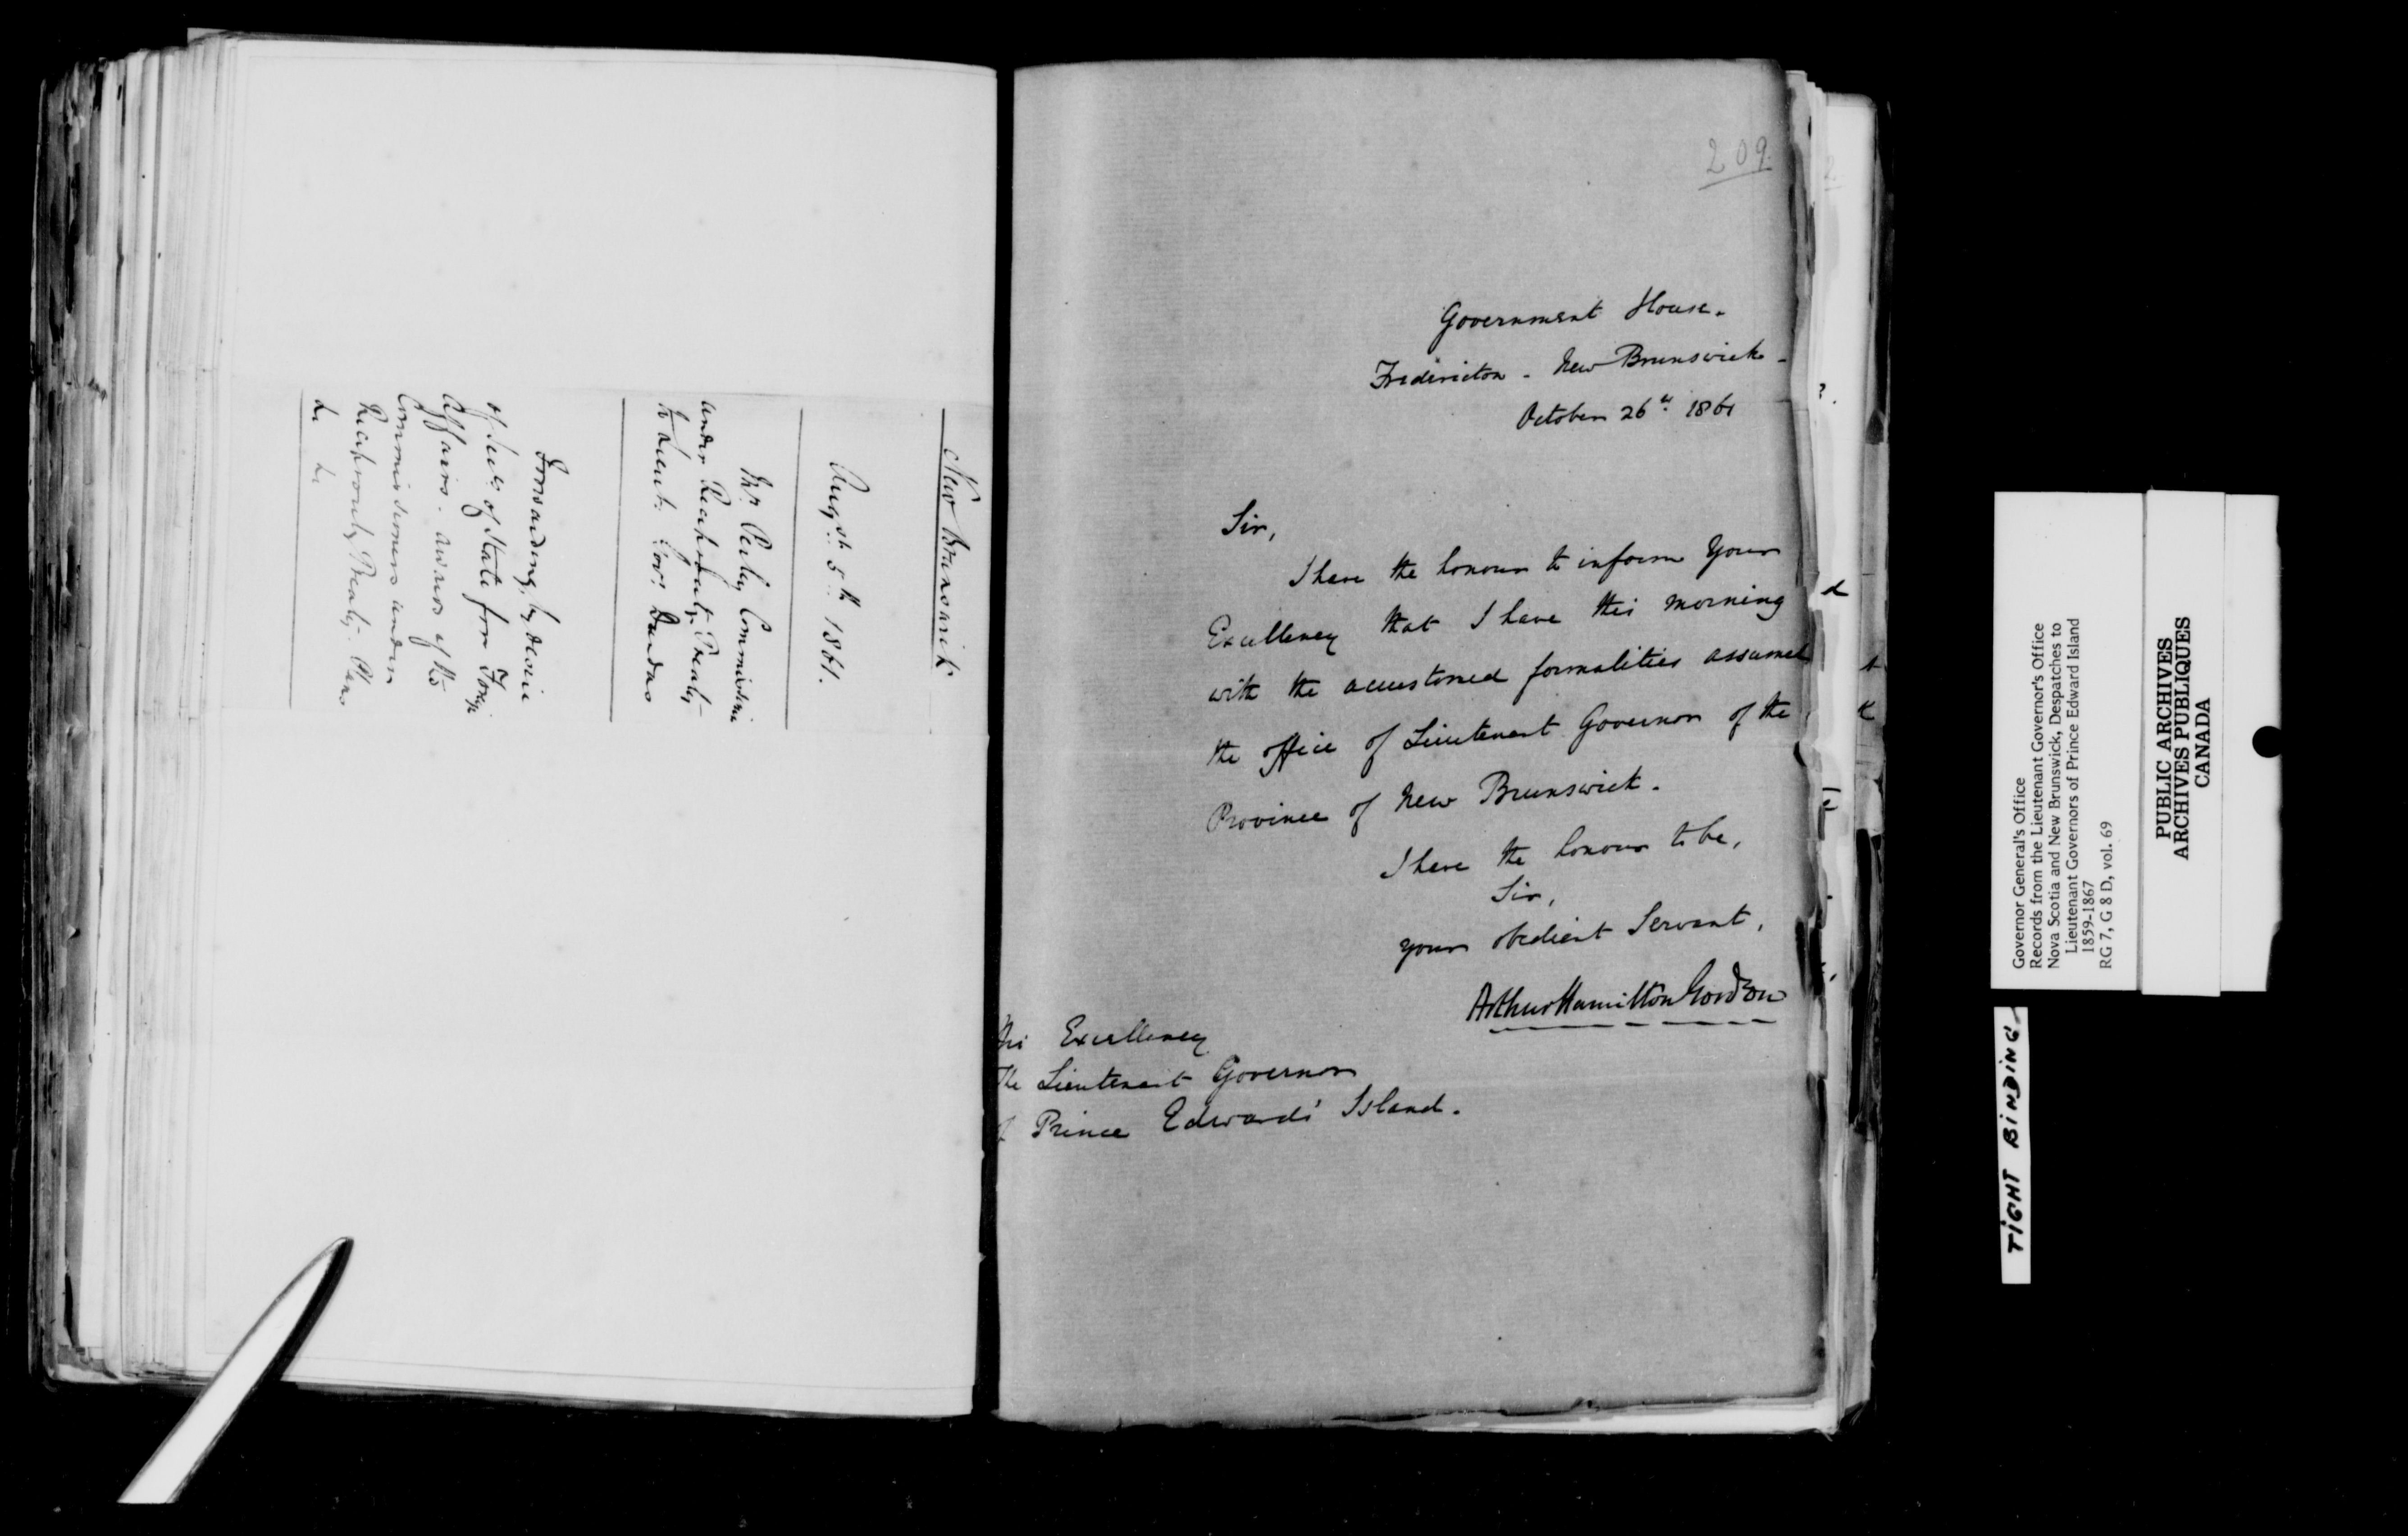 New Brunswick
Augst. 5th. 1861.
Mr. Perley, Commissionr
under Reciprocity Treaty
to Lieut. Govr. Dundas
Forwarding, by desire
of Secy. of State for Forgn
Affairs - awards of the
Commissioners under
Reciprocity Treaty.
209.
Government House.
Fredericton - New Brunswick -
October 26th 1861
Sir,
I have the honour to inform Your
Excellency that I have this morning
with the accustomed formalities assumed
the office of Lieutenant Governor of the
Province of New Brunswick.
I have the honour to be,
Sir,
your obedient Servant,
Arthur Hamilton Gordon
His Excellency
The Lieutenant Governor
of Prince Edwards' Island.
Governor General's Office
Records from the Lieutenant Governor's Office
Nova Scotia and New Brunswick, Despatches to
Lieutenant Governors of Prince Edward Island
1859-1867
RG 7, G 8 D, vol. 69
PUBLIC ARCHIVES
ARCHIVES PUBLIQUES
CANADA
TIGHT BINDING